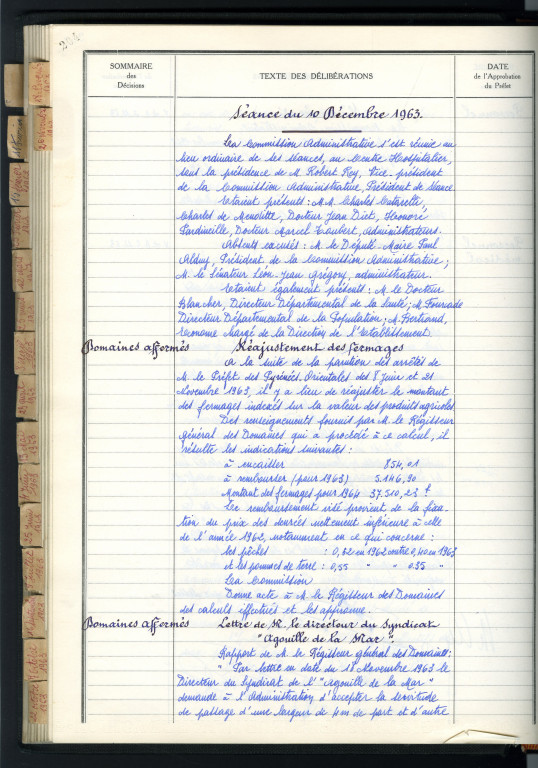 204
SOMMAIRE
des
Décisions
TEXTE DES DÉLIBÉRATIONS
DATE
de l'Approbation
du Préfet
Séance du 10 Décembre 1963.
La Commission Administrative s'est réunie au
lieu ordinaire de ses séances, au Centre Hospitalier,
sous la présidence de M. Robert Rey, Vice-président
de la Commission Administrative, Président de séance
Etaient présents : M.M. Charles
Charles de Docteur Jean Diet, Honoré
Pardineille, Docteur Marcel Joubert, Administrateurs.
Absents excusés : M. le Député-Maire Paul
Alduy, Président de la Commission Administrative ;
M. le Sénateur Léon-Jean Grégory, administrateur.
Etaient également présents : M. le Docteur
Blancher, Directeur Départemental de la Santé ; M. Fourcade
Directeur Départemental de la Population ; M. Bertrand,
Econome chargé de la Direction de l'établissement.
Domaines affermés
Réajustement des fermages
A la suite de la parution des arrêtés de
M. le Préfet des Pyrénées-Orientales des 8 Juin et 21
Novembre 1963, il y a lieu de réajuster le montant
des fermages indexés sur la valeur des produits agricoles.
Des renseignements fournis par M. le Régisseur
général des Domaines qui a procédé à ce calcul, il
résulte les indications suivantes :
à encaisser 854,01
à rembourser (pour 1963) 5.146,90
Montant des fermages pour 1964 37.510,23 f
Le remboursement visé provient de la fixa-
tion du prix des denrées nettement inférieure à celle
de l'année 1962, notamment en ce qui concerne :
les pêches : 0,62 en 1962 contre 0,40 en 1963
et les pommes de terre : 0,55 " " 0.35 "
La Commission
Donne acte à M. le Régisseur des Domaines
des calculs effectués et les approuve.
Domaines affermés
Lettre de M. le directeur du Syndicat
"Agouille de la Mar".
Rapport de M. le Régisseur général des Domaines :
" Par lettre en date du 18 Novembre 1963 le
Directeur du Syndicat de l'"Agouille de la Mar"
demande à l'Administration d'accepter la servitude
de passage d'une largeur de m de part et d'autre